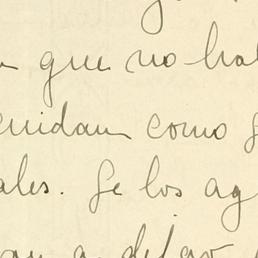 que no hab
cuidan como g
ales. Se los ag
an a dejar